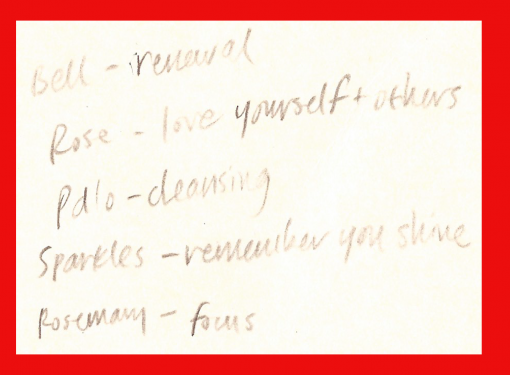 Bell - renewal
Rose - love yourself + others
Pdlo - cleansing
Sparkles - remember you shine
Rosemary - focus